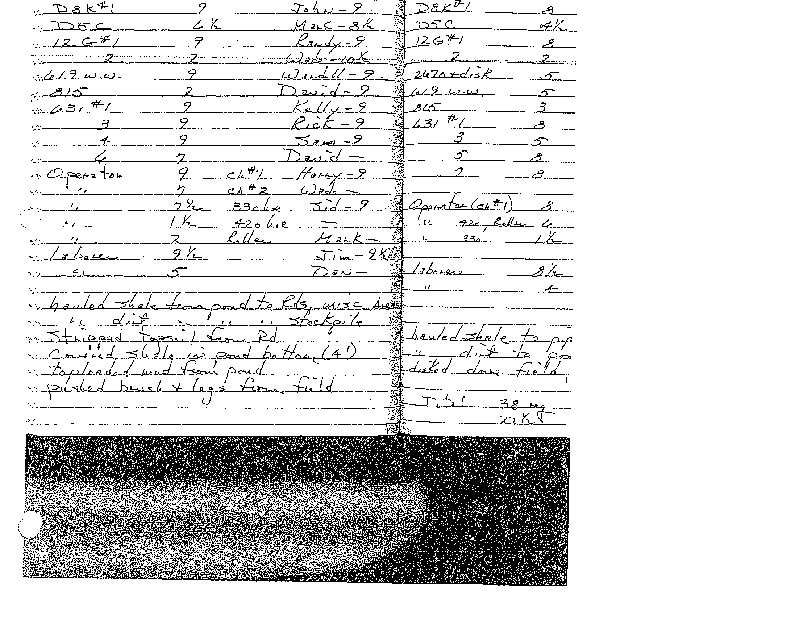 D8K#1 9 John-9
D5C 6½ Mark-8½
12G#1 9 Randy-9
2 2
619 w.w. 9 Wendell-9
815 2 David-9
631 #1 9 Kelly-9
3 9 Rick-9
4 9 Sam-9
6 7 David-
Operator 9 ch#1 Harry-9
" 7 ch#2
" 7½ Sid-9
" 1½ 420 hoe -
" 2 Roller Mark-
Laborer 9½ Jim-
5 Dan-
hauled shale from pond to Rds, misc
" dirt " " " stockpile
Stripped topsoil from Rd
Covered shale in pond bottom (4')
toploaded mud from pond
pushed brush + logs from field
D8K#1 8
D5C 4½
12G#1 8
2 2
2470+disk 5
619 w.w. 5
815 3
631 #1 8
3 5
5 8
7 8
Operator (ch#1) 8
" 420, Roller 6
" 330 1½
laborers 8½
"
hauled shale to
" dirt to
disked down field
38